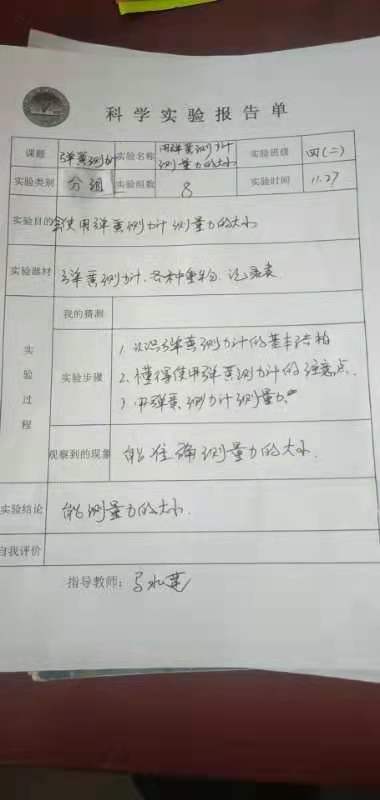 科学实验报告单
课题 弹簧测力计 实验名称 用弹簧测力计测量力的大小 实验班级 四(二)
实验类别 分组 实验组数 8 实验时间 11.27
实验目的 会使用弹簧测力计测量力的大小
实验器材 弹簧测力计、各种重物、记录表
实验过程
我的猜测
实验步骤
1、认识弹簧测力计的基本结构
2、懂得使用弹簧测力计的注意点.
3、用弹簧测力计测量力.
观察到的现象 能准确测量力的大小.
实验结论 能测量力的大小.
自我评价
指导教师: